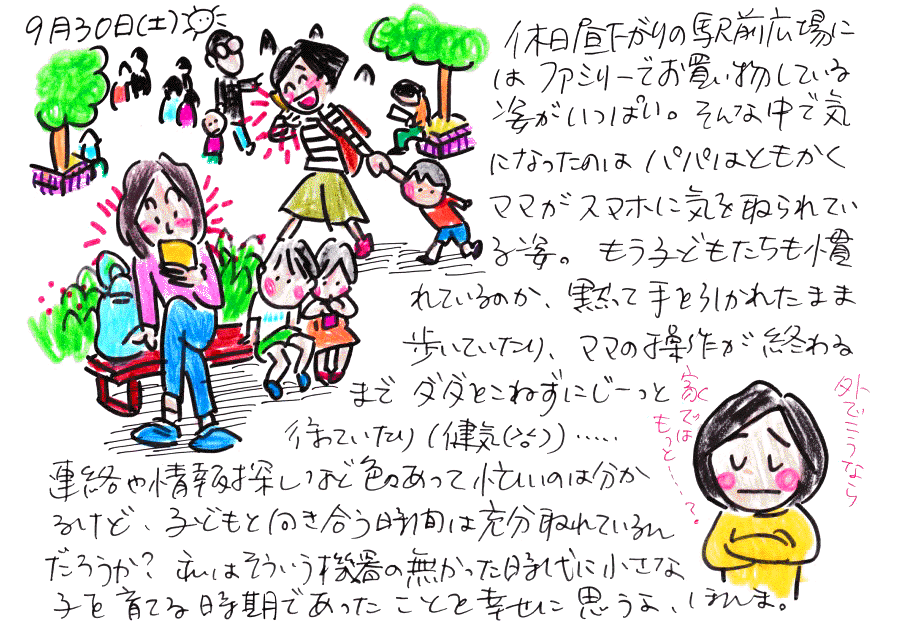 9月30日(土)
休日昼下がりの駅前広場に
は ファミリーでお買い物している
姿がいっぱい。そんな中で気
になったのは パパはともかく
ママがスマホに気を取られてい
る姿。もう子どもたちも慣
れているのか、黙って手を引かれたまま
歩いていたり、ママの操作が終わる
まで ダダをこねずにじーっと
待っていたり(健気(泣))‥‥‥
連絡や情報探しなど色々あって忙しいのは分か
るけど、子どもと向き合う時間は充分取れているん
だろうか? 私はそういう機器の無かった時代に小さな
子を育てる時期であったことを幸せに思うよ、ほんま。
外でこうなら
家では
もっと‥‥‥?